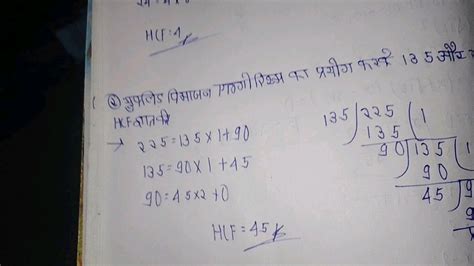 HCF = 4
② युक्लिड विभाजन एल्गोरिथ्म का प्रयोग करके 135 और
HCF ज्ञात करें
→ 225 = 135 × 1 + 90
135 = 90 × 1 + 45
90 = 45 × 2 + 0
HCF = 45
135 ) 225 ( 1
135
90 ) 135 ( 1
90
45 ) 9